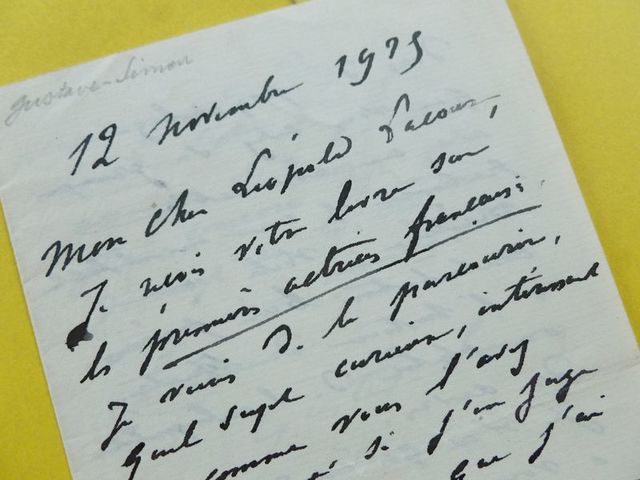 Gustave-Simon
12 novembre
Mon cher Léopold Lacour,
Je reçois votre livre sur
les premières actrices françaises.
Je viens de le parcourir,
Quel sujet curieux, intéressant
comme vous l'avez
si j'en juge
que j'ai